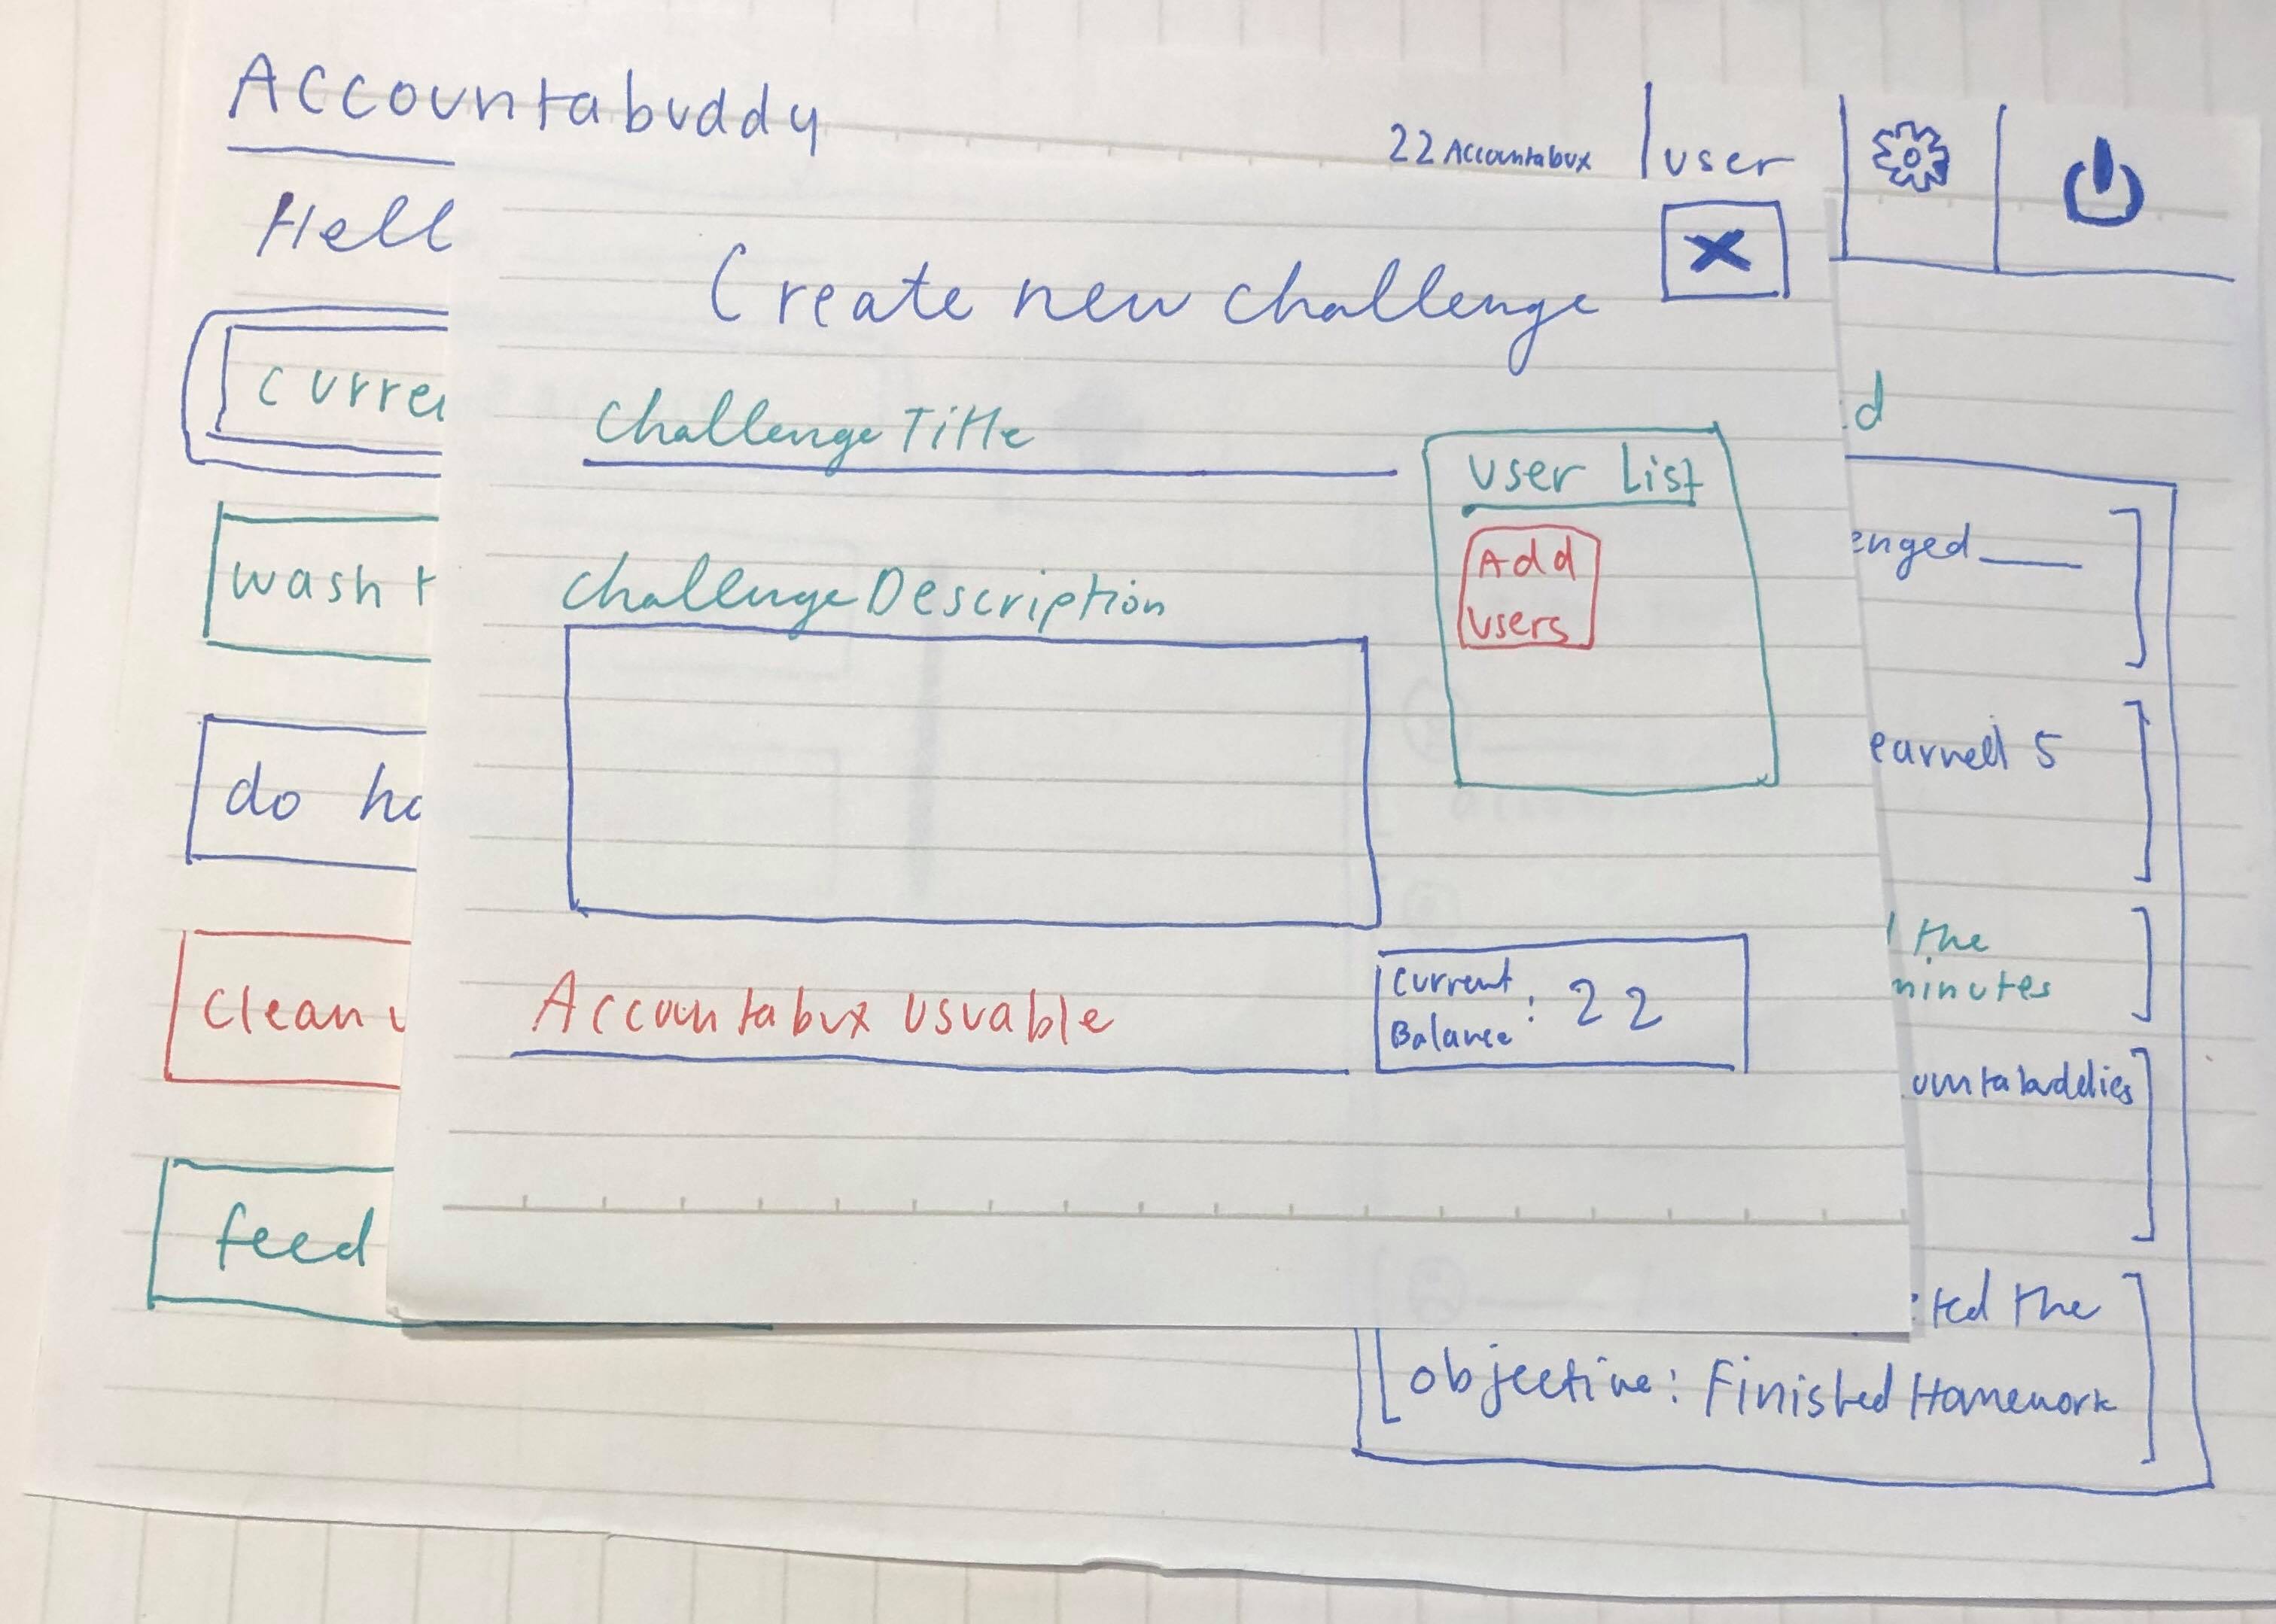 Accountabuddy
22 Accountabux
user
Hell
Create new challenge
X
curre
Challenge Title
User List
Add
Users
d
enged
wash t
Challenge Description
do ho
earned 5
the
minutes
clean u
Accountabux usuable
Current
Balance : 22
ountabuddies
feed
ted the
objective: Finished Homework